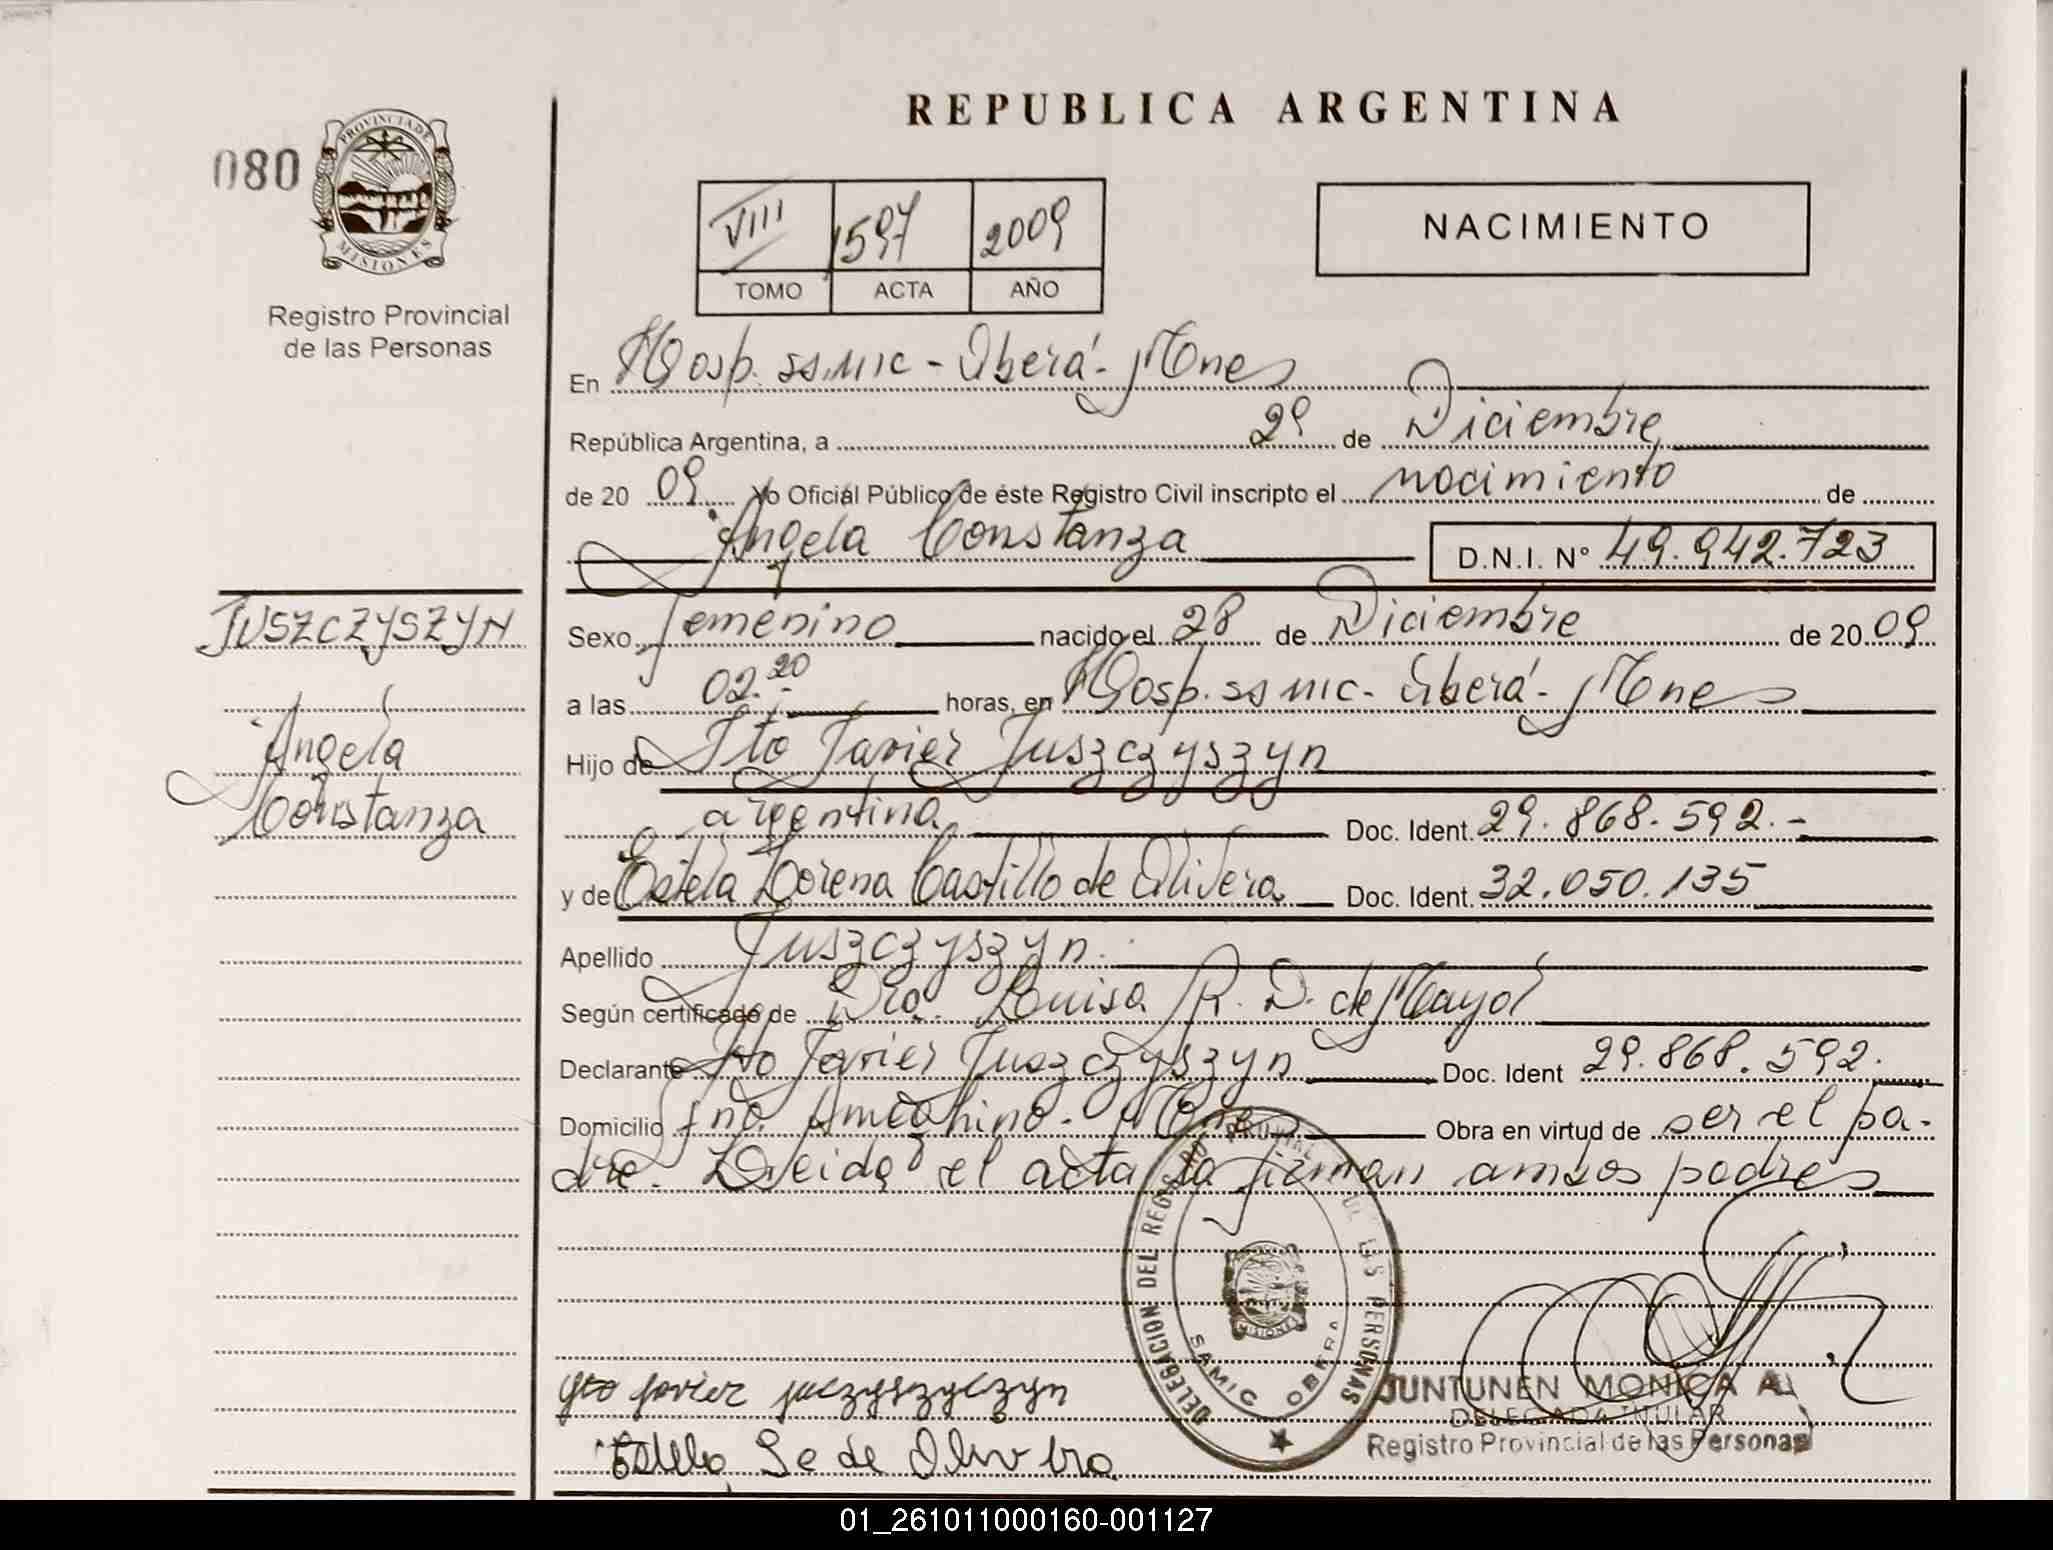 REPUBLICA ARGENTINA
080
PROVINCIA DE
MISIONES
Registro Provincial
de las Personas
VIII 1597 2009
TOMO ACTA AÑO
NACIMIENTO
En Hosp. SAMIC - Oberá - Mnes
República Argentina, a 29 de Diciembre
de 20 09 Yo Oficial Público de éste Registro Civil inscripto el nacimiento de
Angela Constanza D.N.I. Nº 49.942.723
JUSZCZYSZYN
Angela
Constanza
Sexo femenino nacido el 28 de Diciembre de 20 09
a las 02.20 horas, en Hosp. SAMIC - Oberá - Mnes
Hijo de Ito Javier Juszczyszyn
argentina Doc. Ident. 29.868.592.-
y de Estela Lorena Castillo de Olivera Doc. Ident. 32.050.135
Apellido Juszczyszyn.
Según certificado de Dra. Luisa R. D. de Mayol
Declarante Ito Javier Juszczyszyn Doc. Ident 29.868.592.
Domicilio Fno. Ameghino - Mnes Obra en virtud de ser el pa-
dre. Leida el acta la firman ambos padres
DELEGACION DEL REGISTRO PROVINCIAL DE LAS PERSONAS
SAMIC OBERA
MISIONES
Javier
de
JUNTUNEN MONICA A.
DELEGADA TITULAR
Registro Provincial de las Personas
01_261011000160-001127